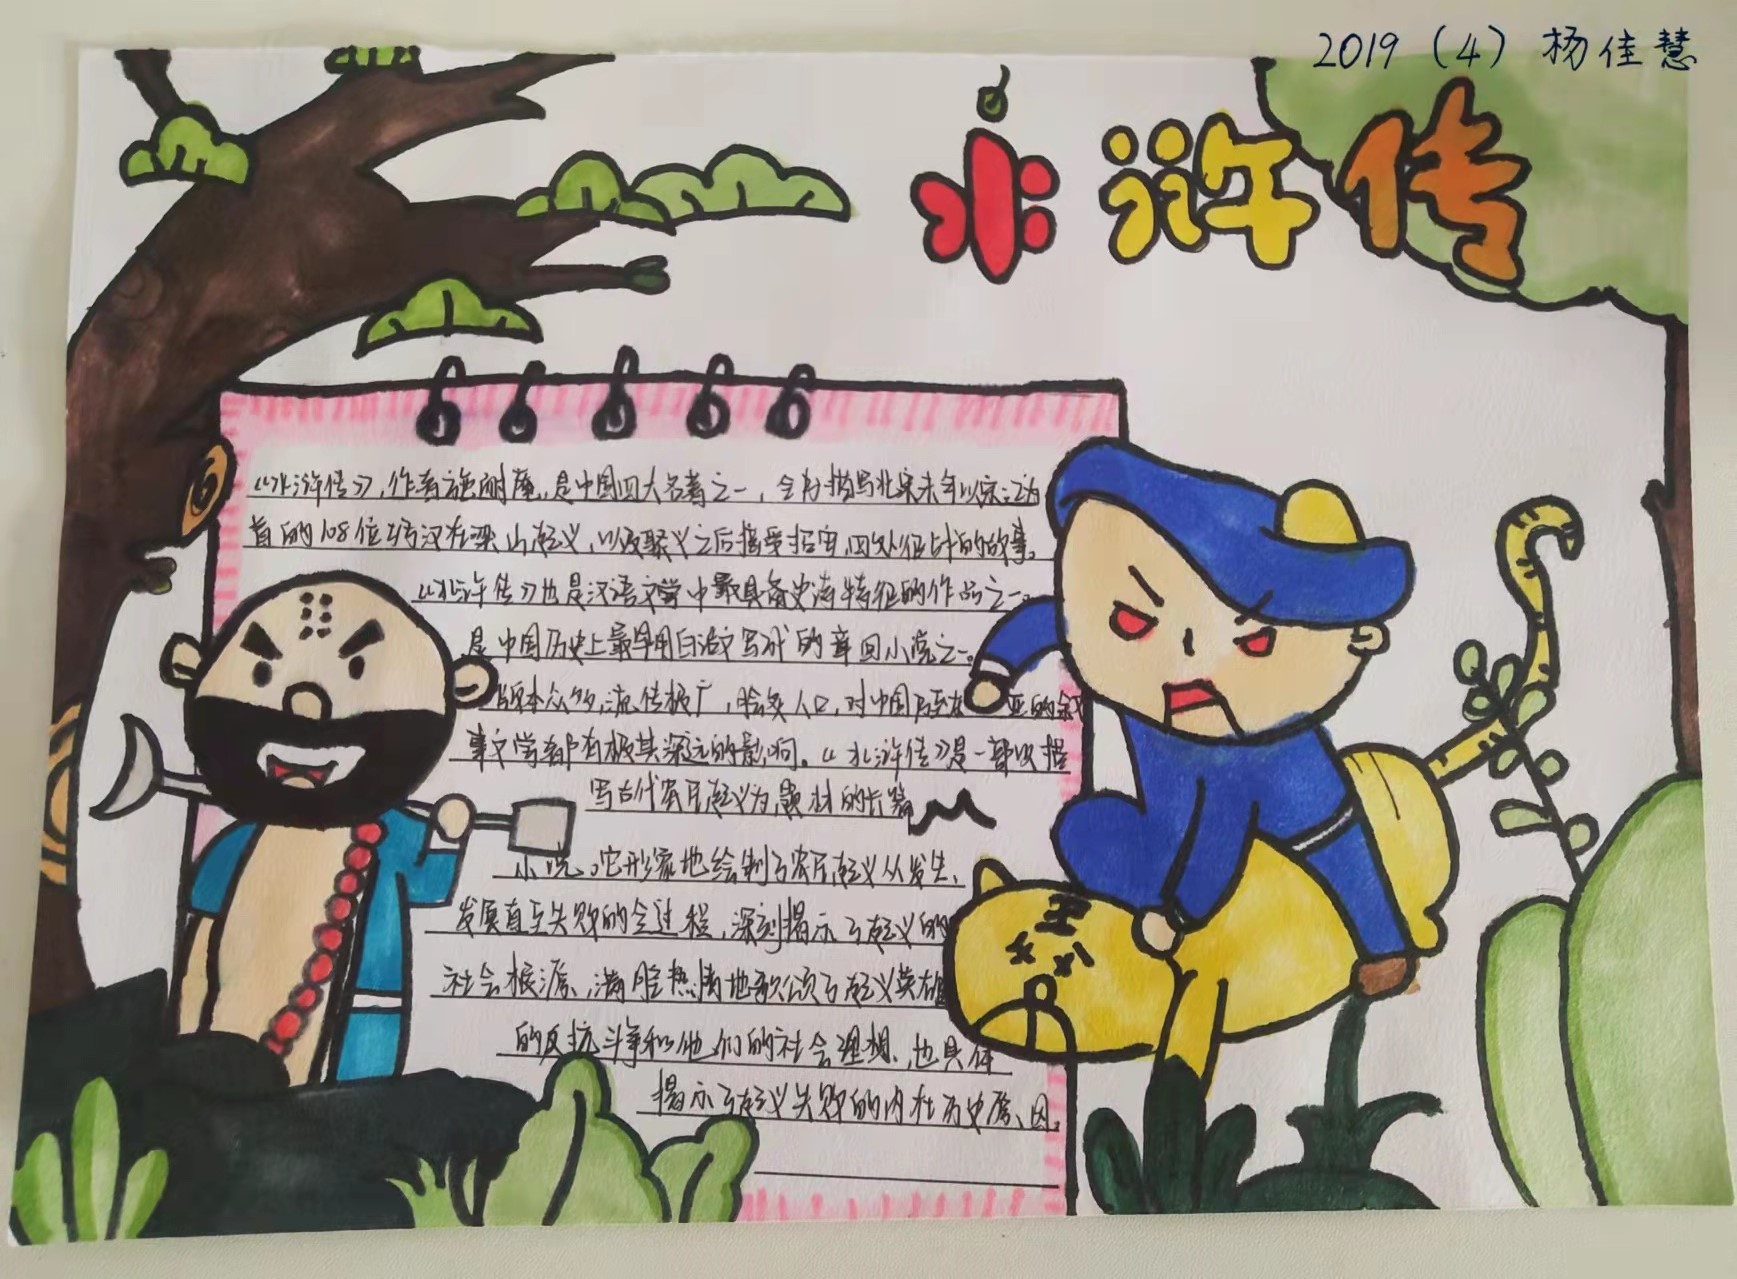 2019（4）杨佳慧
水浒传
《水浒传》，作者施耐庵，是中国四大名著之一，全书描写北宋末年以宋江为
首的108位好汉在梁山起义，以及聚义之后接受招安，四处征战的故事。
《水浒传》也是汉语文学中最具备史诗特征的作品之一。
是中国历史上最早用白话文写成的章回小说之一。
版本众多，流传极广，脍炙人口，对中国乃至东亚的叙
事文学都有极其深远的影响。《水浒传》是一部以描
写古代农民起义为题材的长篇
小说。它形象地绘制了农民起义从发生、
发展直至失败的全过程，深刻揭示了起义的
社会根源，满腔热情地歌颂了起义英雄
的反抗斗争和他们的社会理想，也具体
揭示了起义失败的内在历史原因。
王